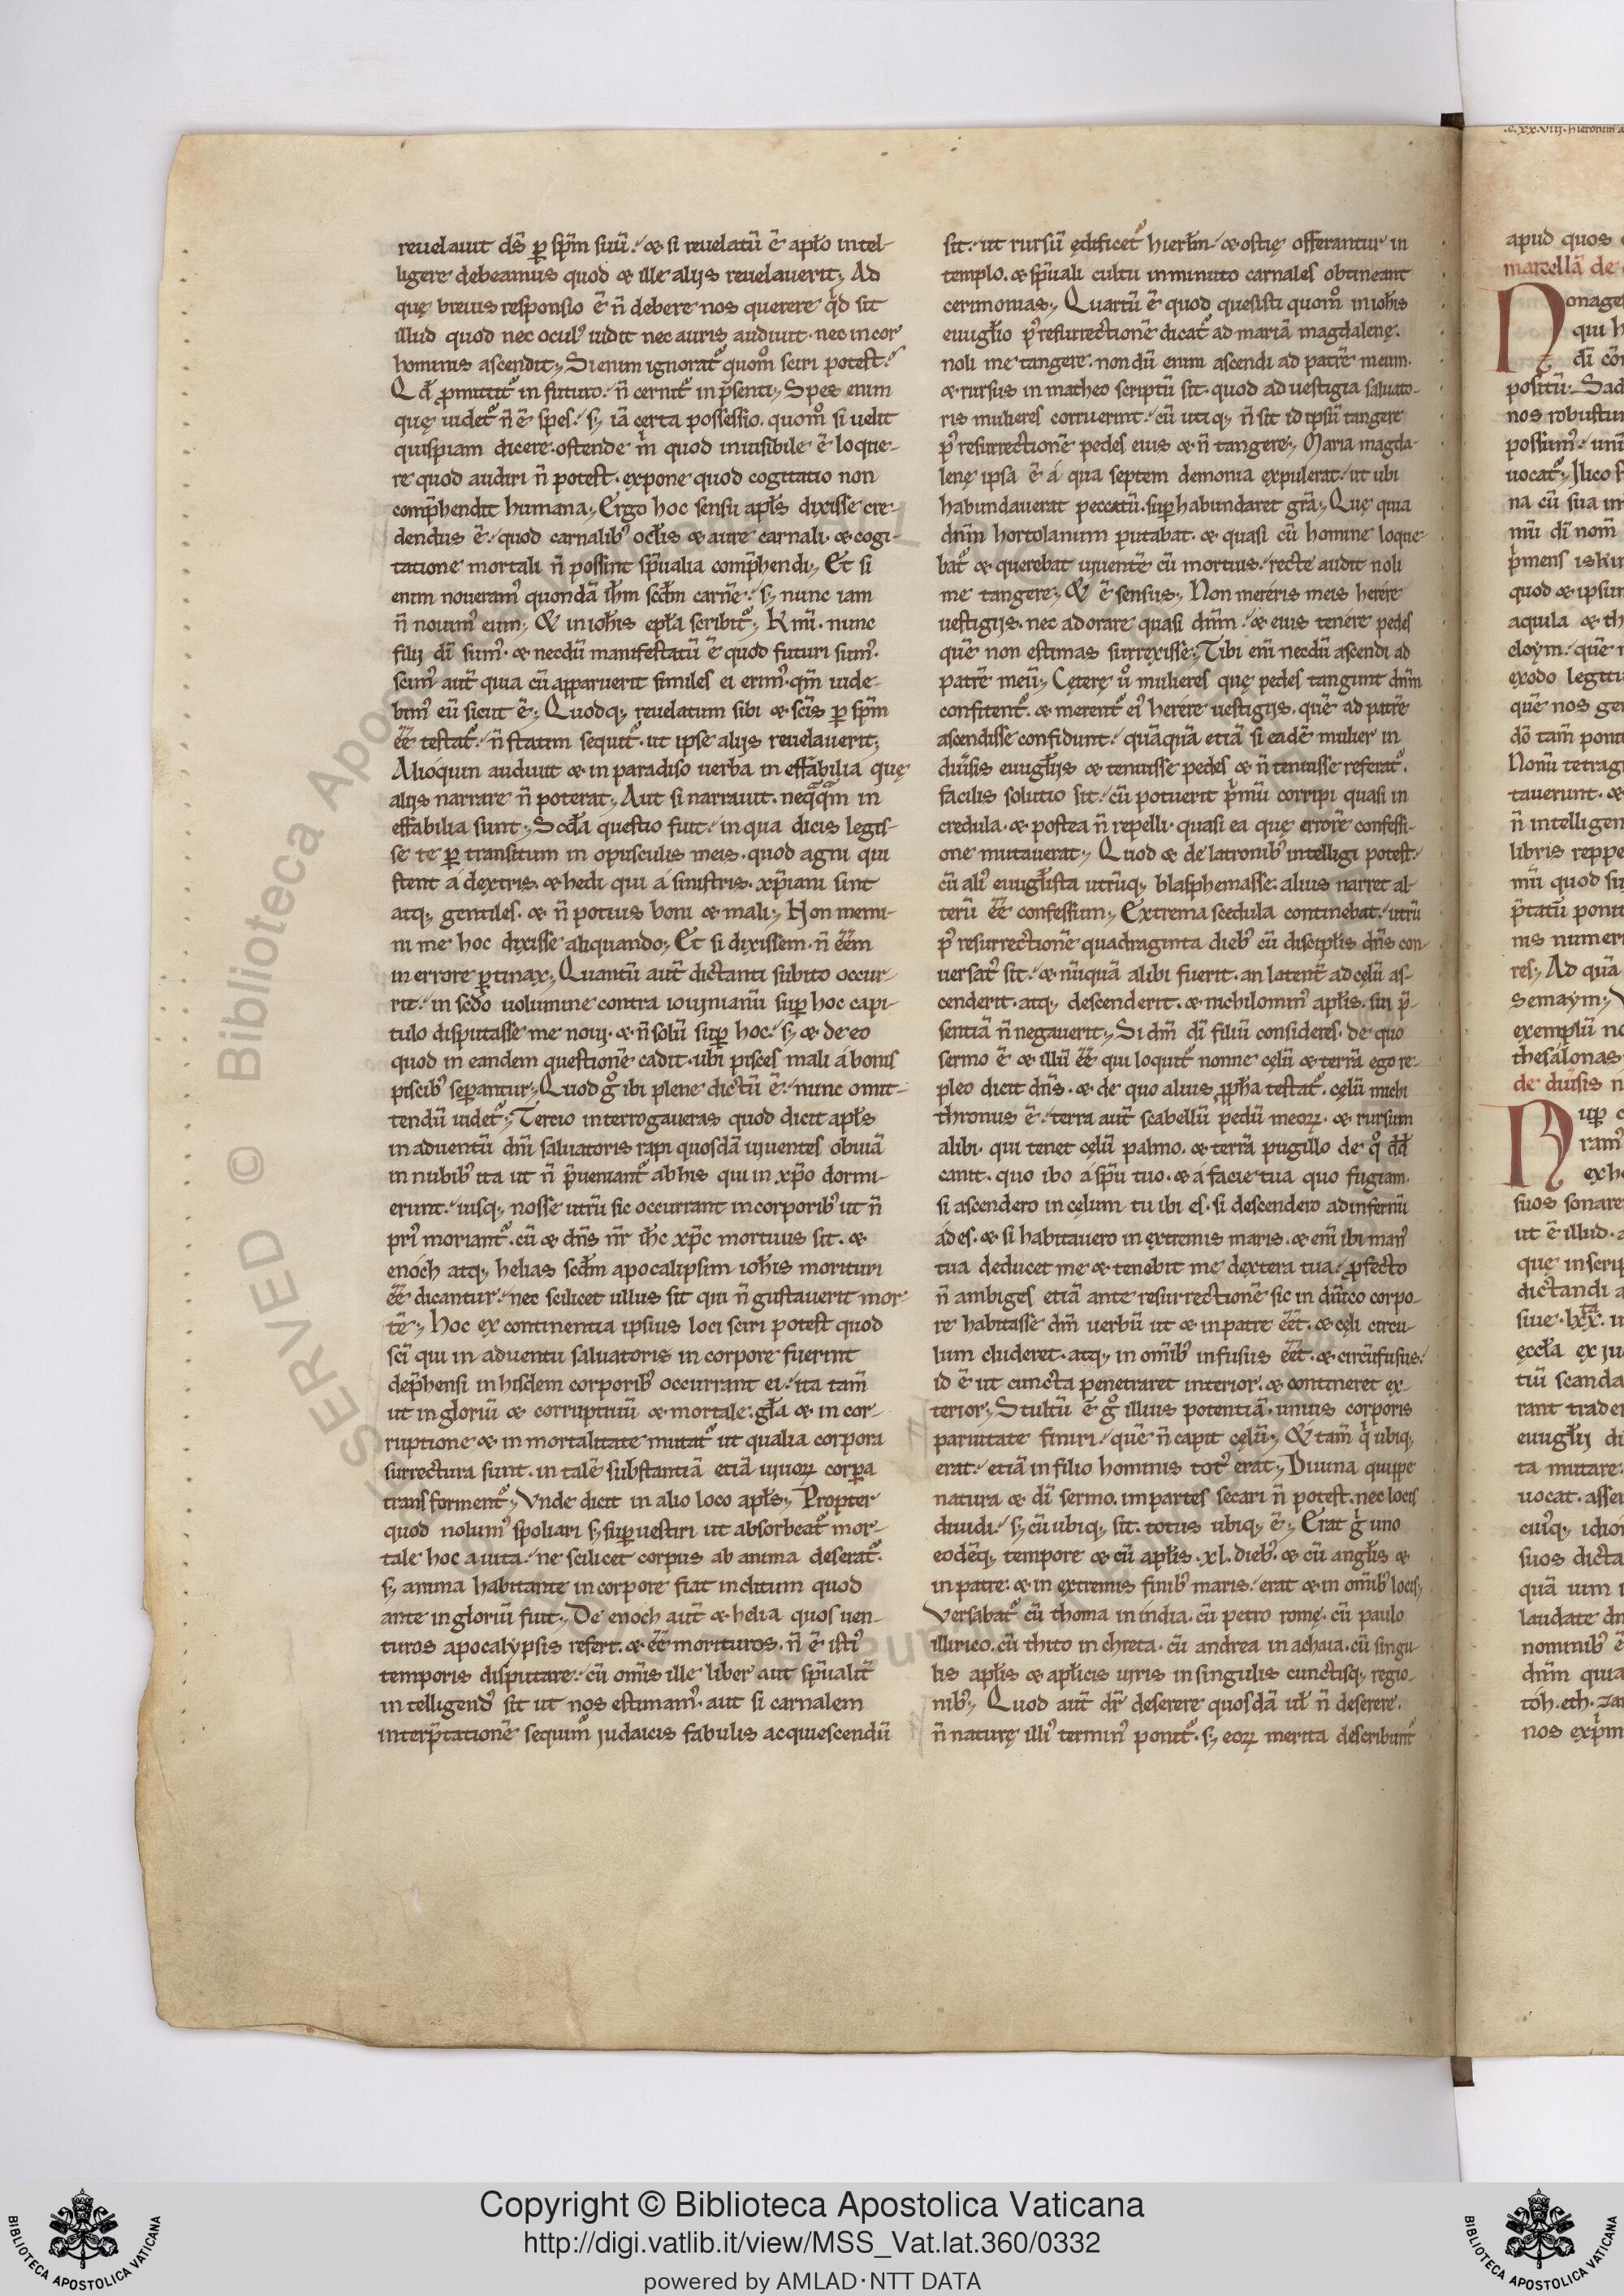 reuelauit ds̄ ꝑ sp̄m suū. ⁊ si reuelatū ē aplo intel-
ligere debeamus quod ⁊ ille alijs reuelauerit; Ad
quę breuis responsio ē n̄ debere nos querere qd sit
illud quod nec ocul᾽ uidit nec auris audiuit. nec in cor
hominis ascendit; Si enim ignorat᷑ quom̊ sciri potest.
Qd̄ ꝓmittit᷑ in futuro. n̄ cernit᷑ in p̄senti; Spes enim
quę uidet᷑ n̄ ē spes. sꝫ iā certa possessio. quom̊ si uelit
quispiam dicere. ostende m̄ quod inuisibile ē loque-
re quod audiri n̄ potest. expone quod cogitatio non
comp̄hendit humana; Ergo hoc sensu apls̄ dixisse cre-
dendus ē. quod carnalib᾽ oclis ⁊ aure carnali. ⁊ cogi-
tatione mortali n̄ possint sp̄ualia comp̄hendi; Et si
enim noueram᾽ quondā ih̄m scd̄m carnē. sꝫ nunc iam
n̄ nouim᾽ eum; & in ioh̄is epl̄a scribit᷑; Kmī. nunc
filij dī sum᾽. ⁊ necdū manifestatū ē quod futuri sum᾽.
scim᾽ aut̄ quia cū apparuerit similes ei erim᾽. qm̄ uide-
bim᾽ eū sicut ē; Quodqꝫ reuelatum sibi ⁊ scīs ꝑ sp̄m
ēē testat᷑. n̄ statim sequit᷑. ut ipse alijs reuelauerit;
Alióquin audiuit ⁊ in paradiso uerba in effabilia quę
alijs narrare n̄ poterat; Aut si narrauit. neq̄q̄m in
effabilia sunt; Scd̄a questio fuit. in qua dicis legis-
se te ꝑ transitum in opusculis meis. quod agni qui
stent á dextris. ⁊ hedi qui á sinistris. xp̄iani sint
atqꝫ gentiles. ⁊ n̄ potius boni ⁊ mali; Non memi-
ni me hoc dixisse aliquando; Et si dixissem. n̄ ēēm
in errore ꝑtinax; Quantū aut̄ dictanti subito occur-
rit. in scd̄o uolumine contra iouinianū suꝑ hoc capi-
tulo disputasse me noui. ⁊ n̄ solū suꝑ hoc. sꝫ ⁊ de eo
quod in eandem questionē cadit. ubi pisces mali á bonis
piscib᾽ seꝑantur; Quod g̊ ibi plene dictū ē. nunc omit-
tendū uidet᷑; Tercio interrogaueras quod dicit apls̄
in aduentū dn̄i saluatoris rapi quosdā uiuentes obuiā
in nubib᾽ ita ut n̄ p̄ueniant᷑ ab his qui in xp̄o dormi-
erunt. uisqꝫ nosse utrū sic occurrant in corporib᾽ ut n̄
pri᾽ moriant᷑. cū ⁊ dn̄s nr̄ ih̄c xp̄c mortuus sit. ⁊
enóch atqꝫ helias scd̄m apocalipsim ioh̄is morituri
ēē dicantur. nec scilicet ullus sit qui n̄ gustauerit mor-
tē; Hoc ex continentia ipsius loci sciri potest quod
scī qui in aduentu saluatoris in corpore fuerint
dep̄hensi in hisdem corporib᾽ occurrant ei. ita tam̄
ut inglóriū ⁊ corruptiuū ⁊ mortale. gl̄a ⁊ in cor-
ruptione ⁊ in mortalitate mutat᷑ ut qualia corpora
surrectura sunt. in talē substantiā etiā uiuoꝝ corꝑa
transforment᷑; Vnde dicit in alio loco apls̄; Propter
quod nolum᾽ spoliari sꝫ suꝑuestiri ut absorbeat᷑ mor-
tale hoc a uita. ne scilicet corpus ab anima deserat᷑.
sꝫ anima habitante in corpore fiat inclitum quod
ante inglóriū fuit; De enoch aut̄ ⁊ helia quos uen-
turos apocalypsis refert. ⁊ ēē morituros. n̄ ē isti᾽
temporis disputare. cū om̄is ille liber aut sp̄ualit̄
intelligend᾽ sit ut nos estimam᾽. aut si carnalem
interp̄tationē sequim᷑ judaicis fabulis acquiescendū
sit. ut rursū ędificet᷑ hierl̄m ⁊ ostię offerantur in
templo. ⁊ sp̄uali cultu inminuto carnales obtineant
cerimonias; Quartū ē quod quesisti quom̊ in ioh̄is
euuglio p᾽ resurrectionē dicat᷑ ad mariā magdalenę.
noli me tangere. nondū enim ascendi ad patrē meum.
⁊ rursus in matheo scriptū sit. quod ad uestigia saluato-
ris mulieres corruerint. cū utiqꝫ n̄ sit id ipsū tangere
p᾽ resurrectionē pedes eius ⁊ n̄ tangere; Maria magda-
lene ipsa ē á qua septem demonia expulerat. ut ubi
habundauerat peccatū. suꝑhabundaret gr̄a; Quę quia
dn̄m hortolanum putabat. ⁊ quasi cū homine loque-
bat᷑ ⁊ querebat uiuentē cū mortuis. recte audit noli
me tangere; & ē sensus; Non meréris meis herére
uestigijs. nec adorare quasi dn̄m. ⁊ eius tenére pedes
quē non estimas surrexisse; Tibi em̄ necdū ascendi ad
patrē meū; Cęterę ů mulieres quę pedes tangunt dn̄m
confitent᷑. ⁊ merent᷑ ei᾽ herere uestigijs. quē ad patrē
ascendisse confidunt. quāquā etiā si eadē mulier in
diu̇sis euugl̄ijs ⁊ tenuisse pedes ⁊ n̄ tenuisse referat᷑.
facilis solutio sit. cū potuerit p̄mū corripi quasi in
credula. ⁊ postea n̄ repelli. quasi ea quę errorē confessi-
one mutauerat; Quod ⁊ de latronib᾽ intelligi potest.
cū ali᾽ euuglista utrūqꝫ blasphemasse. alius narret al-
terū ēē confessum; Extrema scedula continebat. utrū
p᾽ resurrectionē quadraginta dieb᾽ cū discipl̄is dn̄s con-
uersat᾽ sit. ⁊ nūquā alibi fuerit. an latent̄ ad cęlū as-
cenderit. atqꝫ descenderit. ⁊ nichilomin᾽ apl̄is. sui p̄-
sentiā n̄ negauerit; Si dn̄m dī filiū consideres. de quo
sermo ē ⁊ illū ēē qui loquit᷑ nonne cęlū ⁊ terrā ego re-
pleo dicit dn̄s. ⁊ de quo alius ꝓph̄a testat᷑. cęlū michi
thronus ē. terra aut̄ scabellū pedū meoꝝ. ⁊ rursum
alibi. qui tenet cęlū palmo. ⁊ terrā pugillo de q̊ dd̄
canit. quo ibo a sp̄u tuo. ⁊ á facie tua quo fugiam.
si ascendero in cęlum tu ibi es. si descendero ad infernū
ádes. ⁊ si habitauero in extremis maris. ⁊ em̄ ibi man᾽
tua deducet me ⁊ tenebit me dextera tua. ꝓfecto
n̄ ambiges etiā ante resurrectionē sic in dn̄ico corpo-
re habitasse dn̄m uerbū ut ⁊ in patre ēēt. ⁊ cęli circu-
lum cluderet. atqꝫ in om̄ib᾽ infusus ēēt. ⁊ circūfusus.
id ē ut cuncta penetraret interior. ⁊ contineret ex-
terior; Stultū ē g̊ illius potentiā. unius corporis
paruitate finiri. quē n̄ capit cęlū; & tam̄ q̇ ubiqꝫ
erat. etiā in filio hominis tot᾽ erat; Diuina quippe
natura ⁊ dī sermo. in partes secari n̄ potest. nec locis
diuidi. sꝫ cū ubiqꝫ sit. totus ubiqꝫ ē; Erat g̊ uno
eodēqꝫ tempore ⁊ cū apl̄is .xl. dieb᾽. ⁊ cū angl̄is ⁊
in patre. ⁊ in extremis finib᾽ maris. erat ⁊ in om̄ib᾽ locis;
Versabat᷑ cū thoma in índia. cū petro romę. cū paulo
illirico. cū thito in chreta. cū andrea in achaia. cū singu-
lis apl̄is ⁊ apl̄icis uiris in singulis cunctisqꝫ regio-
nib᾽; Quod aut̄ dr̄ deserere quosdā ul̄ n̄ deserere.
n̄ naturę illi᾽ termin᾽ ponit᷑. sꝫ eoꝝ merita describunt᷑
apud quos
marcellā de
onage
qui h
dī cō
positū. Sad
nos robustu
possum᾽. unū
uocat᷑. Ilico
na cū sua in
mū dī nom̄
p̄mens iskir
quod ⁊ ipsum
aquila ⁊ th
eloym. quē
exodo legitu
quē nos ge
dō tam̄ pont
Nonū tetrag
tauerunt. ⁊
n̄ intelligen
libris reppe
mū quod su
p̄tatū poni
nis numeri
res; Ad quā
semaym;
exemplū no
thesálonas
de diu̇sis n
uꝑ c
ram᾽
ex he
suos sonare
ut ē illud. a
que inscrip
dictandi a
siue .lxx. in
ęccl̄a ex ju
tiū scanda
rant trader
euugl̄ij di
ta mutare.
uocat. asser
cui᾽qꝫ idio
suos dicta
quā uim
laudate dn
nominib᾽ ē
dn̄m quia
tóh. eth. zai
nos exp̄m
SERVED © Biblioteca Apos
Copyright © Biblioteca Apostolica Vaticana
http://digi.vatlib.it/view/MSS_Vat.lat.360/0332
powered by AMLAD·NTT DATA
BIBLIOTECA APOSTOLICA VATICANA
BIBLIOTECA APOSTOLICA VATICANA